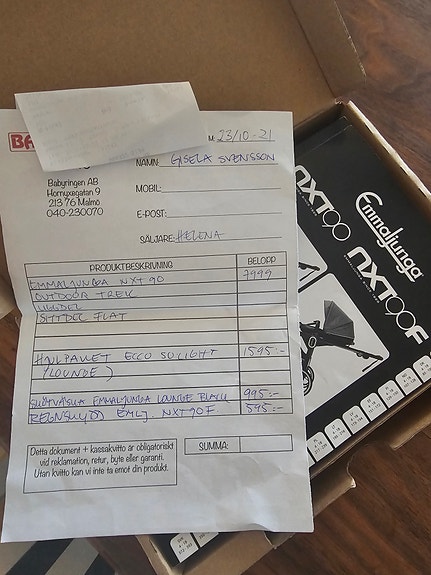 BA
M: 23/10-21
NAMN: GISELA SVENSSON
Babyringen AB
Hornyxegatan 9
213 76 Malmö
040-230070
MOBIL:
E-POST:
SÄLJARE: HELENA
PRODUKTBESKRIVNING BELOPP
EMMALJUNGA NXT 90 7999
OUTDOOR TREK
LIGGDEL
SITTDEL FLAT
HJULPAKET ECCO SOLIGHT 1595:-
(LOUNGE)
SKÖTVÄSKA EMMALJUNGA LOUNGE BLACK 995:-
REGNSKYDD EMLJ. NXT 90F 595:-
Detta dokument + kassakvitto är obligatoriskt
vid reklamation, retur, byte eller garanti.
Utan kvitto kan vi inte ta emot din produkt.
SUMMA:
Emmaljunga
NXT90
NXT90F